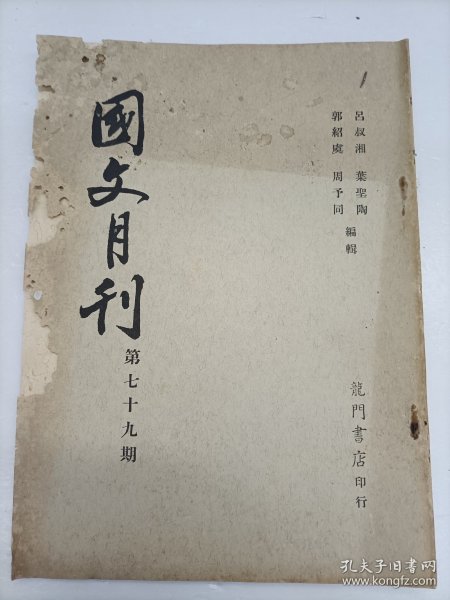 呂叔湘 葉聖陶
郭紹虞 周予同
編輯
國文月刊
第七十九期
龍門書店印行
1
孔夫子旧书网
www.kongfz.com